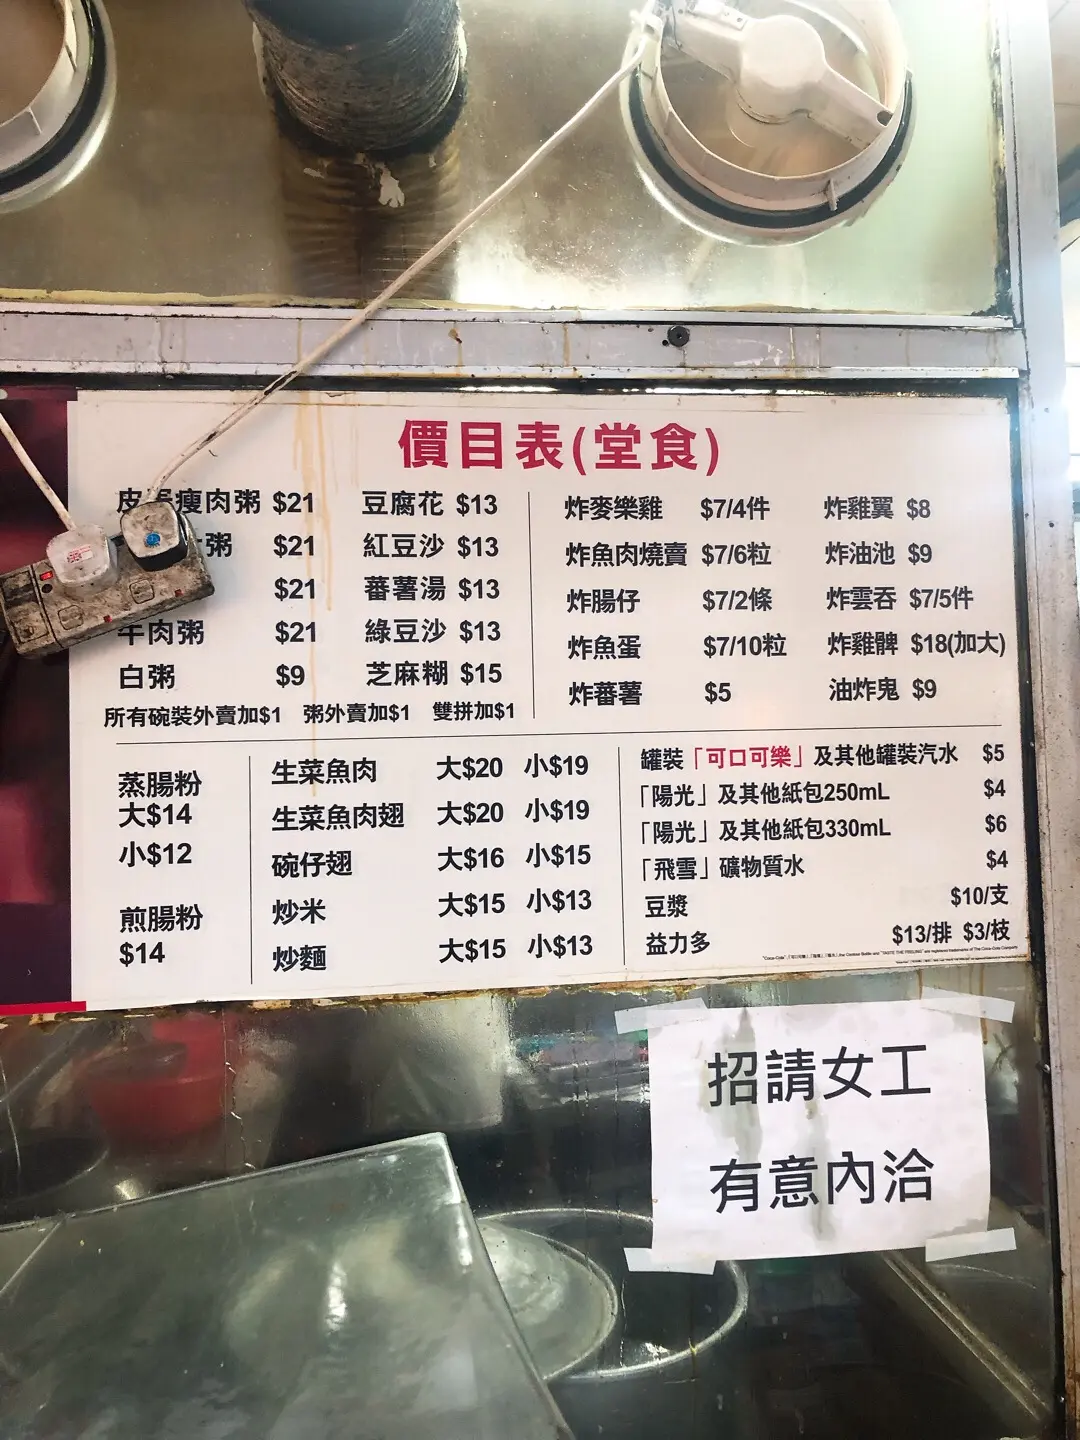 價目表(堂食)
瘦肉粥 $21
粥 $21
$21
牛肉粥 $21
白粥 $9
豆腐花 $13
紅豆沙 $13
蕃薯湯 $13
綠豆沙 $13
芝麻糊 $15
所有碗裝外賣加$1 粥外賣加$1 雙拼加$1
炸麥樂雞 $7/4件
炸魚肉燒賣 $7/6粒
炸腸仔 $7/2條
炸魚蛋 $7/10粒
炸蕃薯 $5
炸雞翼 $8
炸油池 $9
炸雲吞 $7/5件
炸雞髀 $18(加大)
油炸鬼 $9
蒸腸粉
大$14
小$12
煎腸粉
$14
生菜魚肉 大$20 小$19
生菜魚肉翅 大$20 小$19
碗仔翅 大$16 小$15
炒米 大$15 小$13
炒麵 大$15 小$13
罐裝「可口可樂」及其他罐裝汽水 $5
「陽光」及其他紙包250mL $4
「陽光」及其他紙包330mL $6
「飛雪」礦物質水 $4
豆漿 $10/支
益力多 $13/排 $3/枝
招請女工
有意內洽